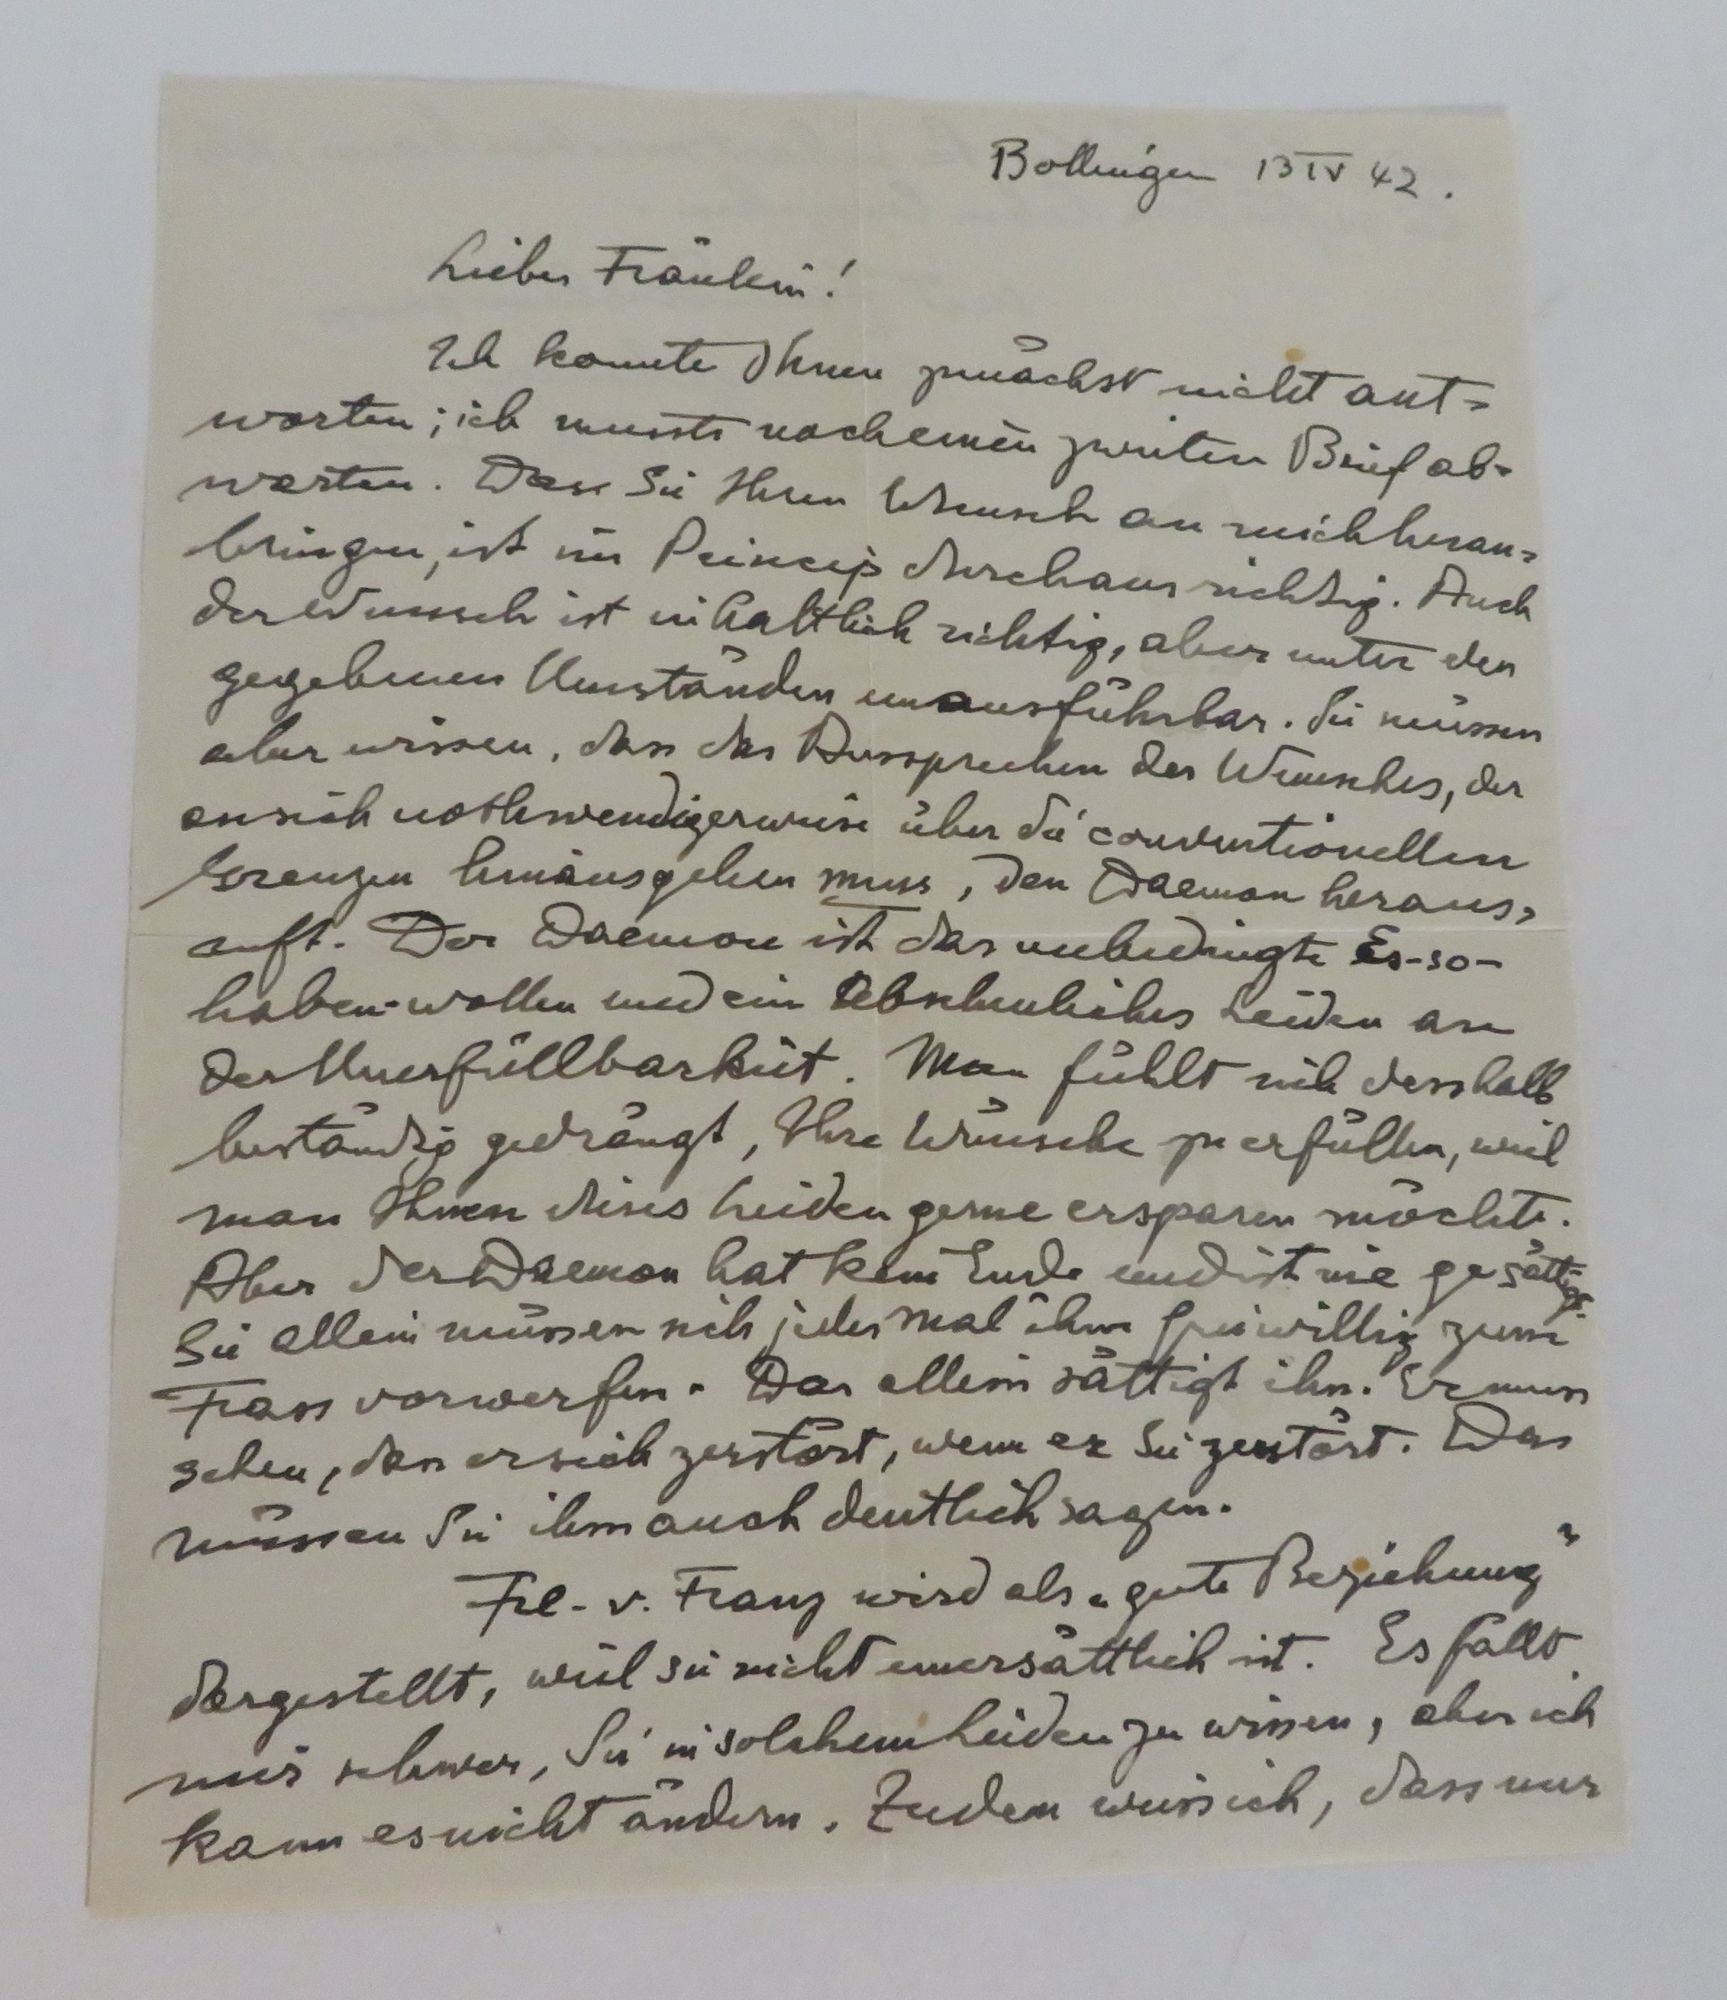 Bollingen 13 IV 42.
Liebes Fräulein!
Ich konnte Ihnen zunächst nicht ant=
worten; ich musste noch einen zweiten Brief ab=
warten. Dass Sie Ihren Wunsch an mich heran=
bringen, ist im Princip durchaus richtig. Auch
der Wunsch ist inhaltlich richtig, aber unter den
gegebenen Umständen unausführbar. Sie müssen
aber wissen, dass das Aussprechen des Wunsches, der
an sich nothwendigerweise über die conventionellen
Grenzen hinausgehen muss, den Daemon heraus=
ruft. Der Daemon ist das unbedingte Es-so-
haben-wollen und ein abscheuliches Leiden an
der Unerfüllbarkeit. Man fühlt sich desshalb
beständig gedrängt, Ihre Wünsche zu erfüllen, weil
man Ihnen dieses Leiden gerne ersparen möchte.
Aber der Daemon hat kein Ende und ist nie gesättigt.
Sie allein müssen sich jedes Mal ihm freiwillig zum
Frass vorwerfen. Das allein sättigt ihn. Er muss
sehen, dass er sich zerstört, wenn er Sie zerstört. Das
müssen Sie ihm auch deutlich sagen.
Frl. v. Franz wird als „gute Beziehung"
dargestellt, weil sie nicht unersättlich ist. Es fällt
mir schwer, Sie in solchem Leiden zu wissen, aber ich
kann es nicht ändern. Zudem weiss ich, dass nur